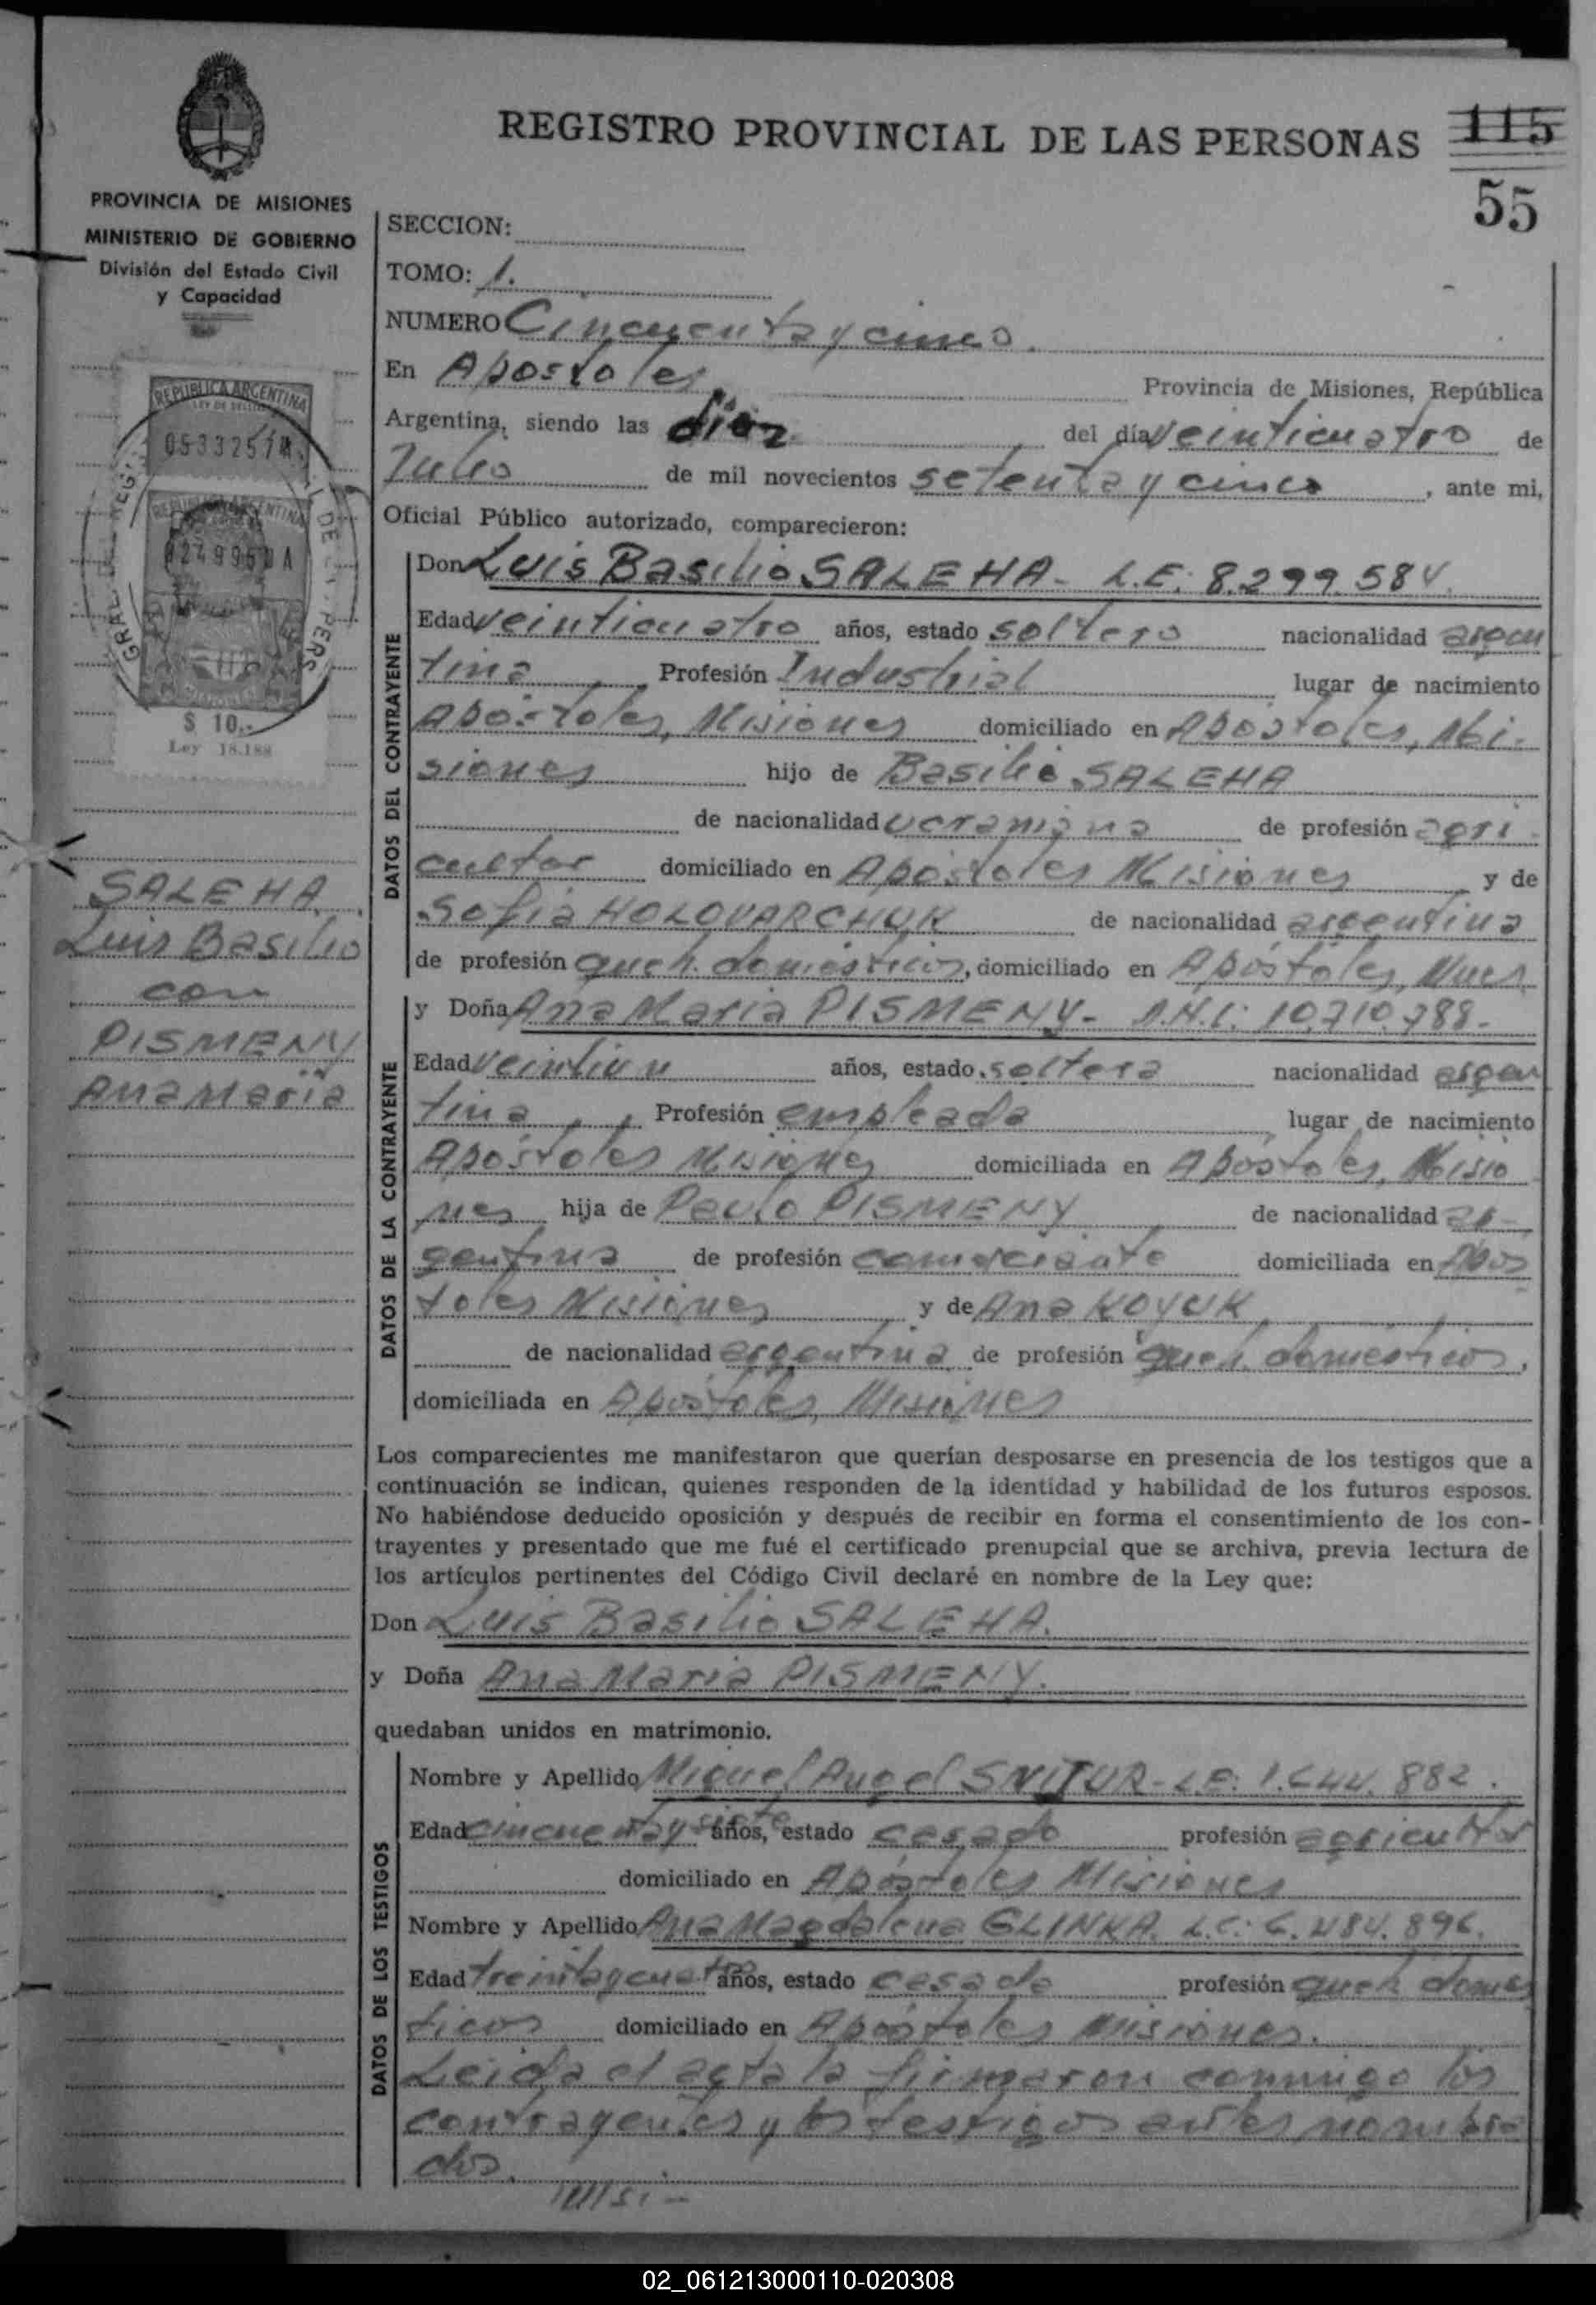 REGISTRO PROVINCIAL DE LAS PERSONAS
115
55
PROVINCIA DE MISIONES
MINISTERIO DE GOBIERNO
División del Estado Civil
y Capacidad
REPUBLICA ARGENTINA
LEY DE SELLOS
REPUBLICA ARGENTINA
$ 10.-
Ley 18.188
SALEHA
Luis Basilio
con
PISMENY
Ana María
SECCION:
TOMO: 1.
NUMERO Cincuenta y cinco.
En Apóstoles, Provincia de Misiones, República
Argentina, siendo las diez del día veinticuatro de
Julio de mil novecientos setenta y cinco, ante mi,
Oficial Público autorizado, comparecieron:
DATOS DEL CONTRAYENTE
Don Luis Basilio SALEHA- L.E: 8.299.584.
Edad veinticuatro años, estado soltero nacionalidad argen
tina, Profesión Industrial lugar de nacimiento
Apóstoles, Misiones domiciliado en Apóstoles, Mi-
siones hijo de Basilio SALEHA
de nacionalidad ucraniana de profesión agri-
cultor domiciliado en Apóstoles Misiones y de
Sofia HOLOVARCHUK de nacionalidad argentina
de profesión queh. domésticos, domiciliado en Apóstoles, Mnes.
DATOS DE LA CONTRAYENTE
y Doña Ana María PISMENY- D.N.I: 10.710.788-
Edad veintiun años, estado soltera nacionalidad argen
tina, Profesión empleada lugar de nacimiento
Apóstoles Misiones domiciliada en Apóstoles, Misio
nes hija de Pablo PISMENY de nacionalidad ar-
gentina de profesión comerciante domiciliada en Apos
toles Misiones y de Ana KOYUK
de nacionalidad argentina de profesión queh. domésticos,
domiciliada en Apóstoles, Misiones
Los comparecientes me manifestaron que querían desposarse en presencia de los testigos que a
continuación se indican, quienes responden de la identidad y habilidad de los futuros esposos.
No habiéndose deducido oposición y después de recibir en forma el consentimiento de los con-
trayentes y presentado que me fué el certificado prenupcial que se archiva, previa lectura de
los artículos pertinentes del Código Civil declaré en nombre de la Ley que:
Don Luis Basilio SALEHA.
y Doña Ana María PISMENY.
quedaban unidos en matrimonio.
DATOS DE LOS TESTIGOS
Nombre y Apellido Miguel Angel SNITUR- L.E: 1.644.882.
Edad cincuenta y siete años, estado casado profesión agricultor
domiciliado en Apóstoles Misiones
Nombre y Apellido Ana Magdalena GLINKA. L.C: 6.484.896.
Edad treinta y cuatro años, estado casada profesión queh domés
ticos domiciliado en Apóstoles Misiones.
Leída el acta la firmaron conmigo los
contrayentes y los testigos antes nombra
dos.
02_061213000110-020308